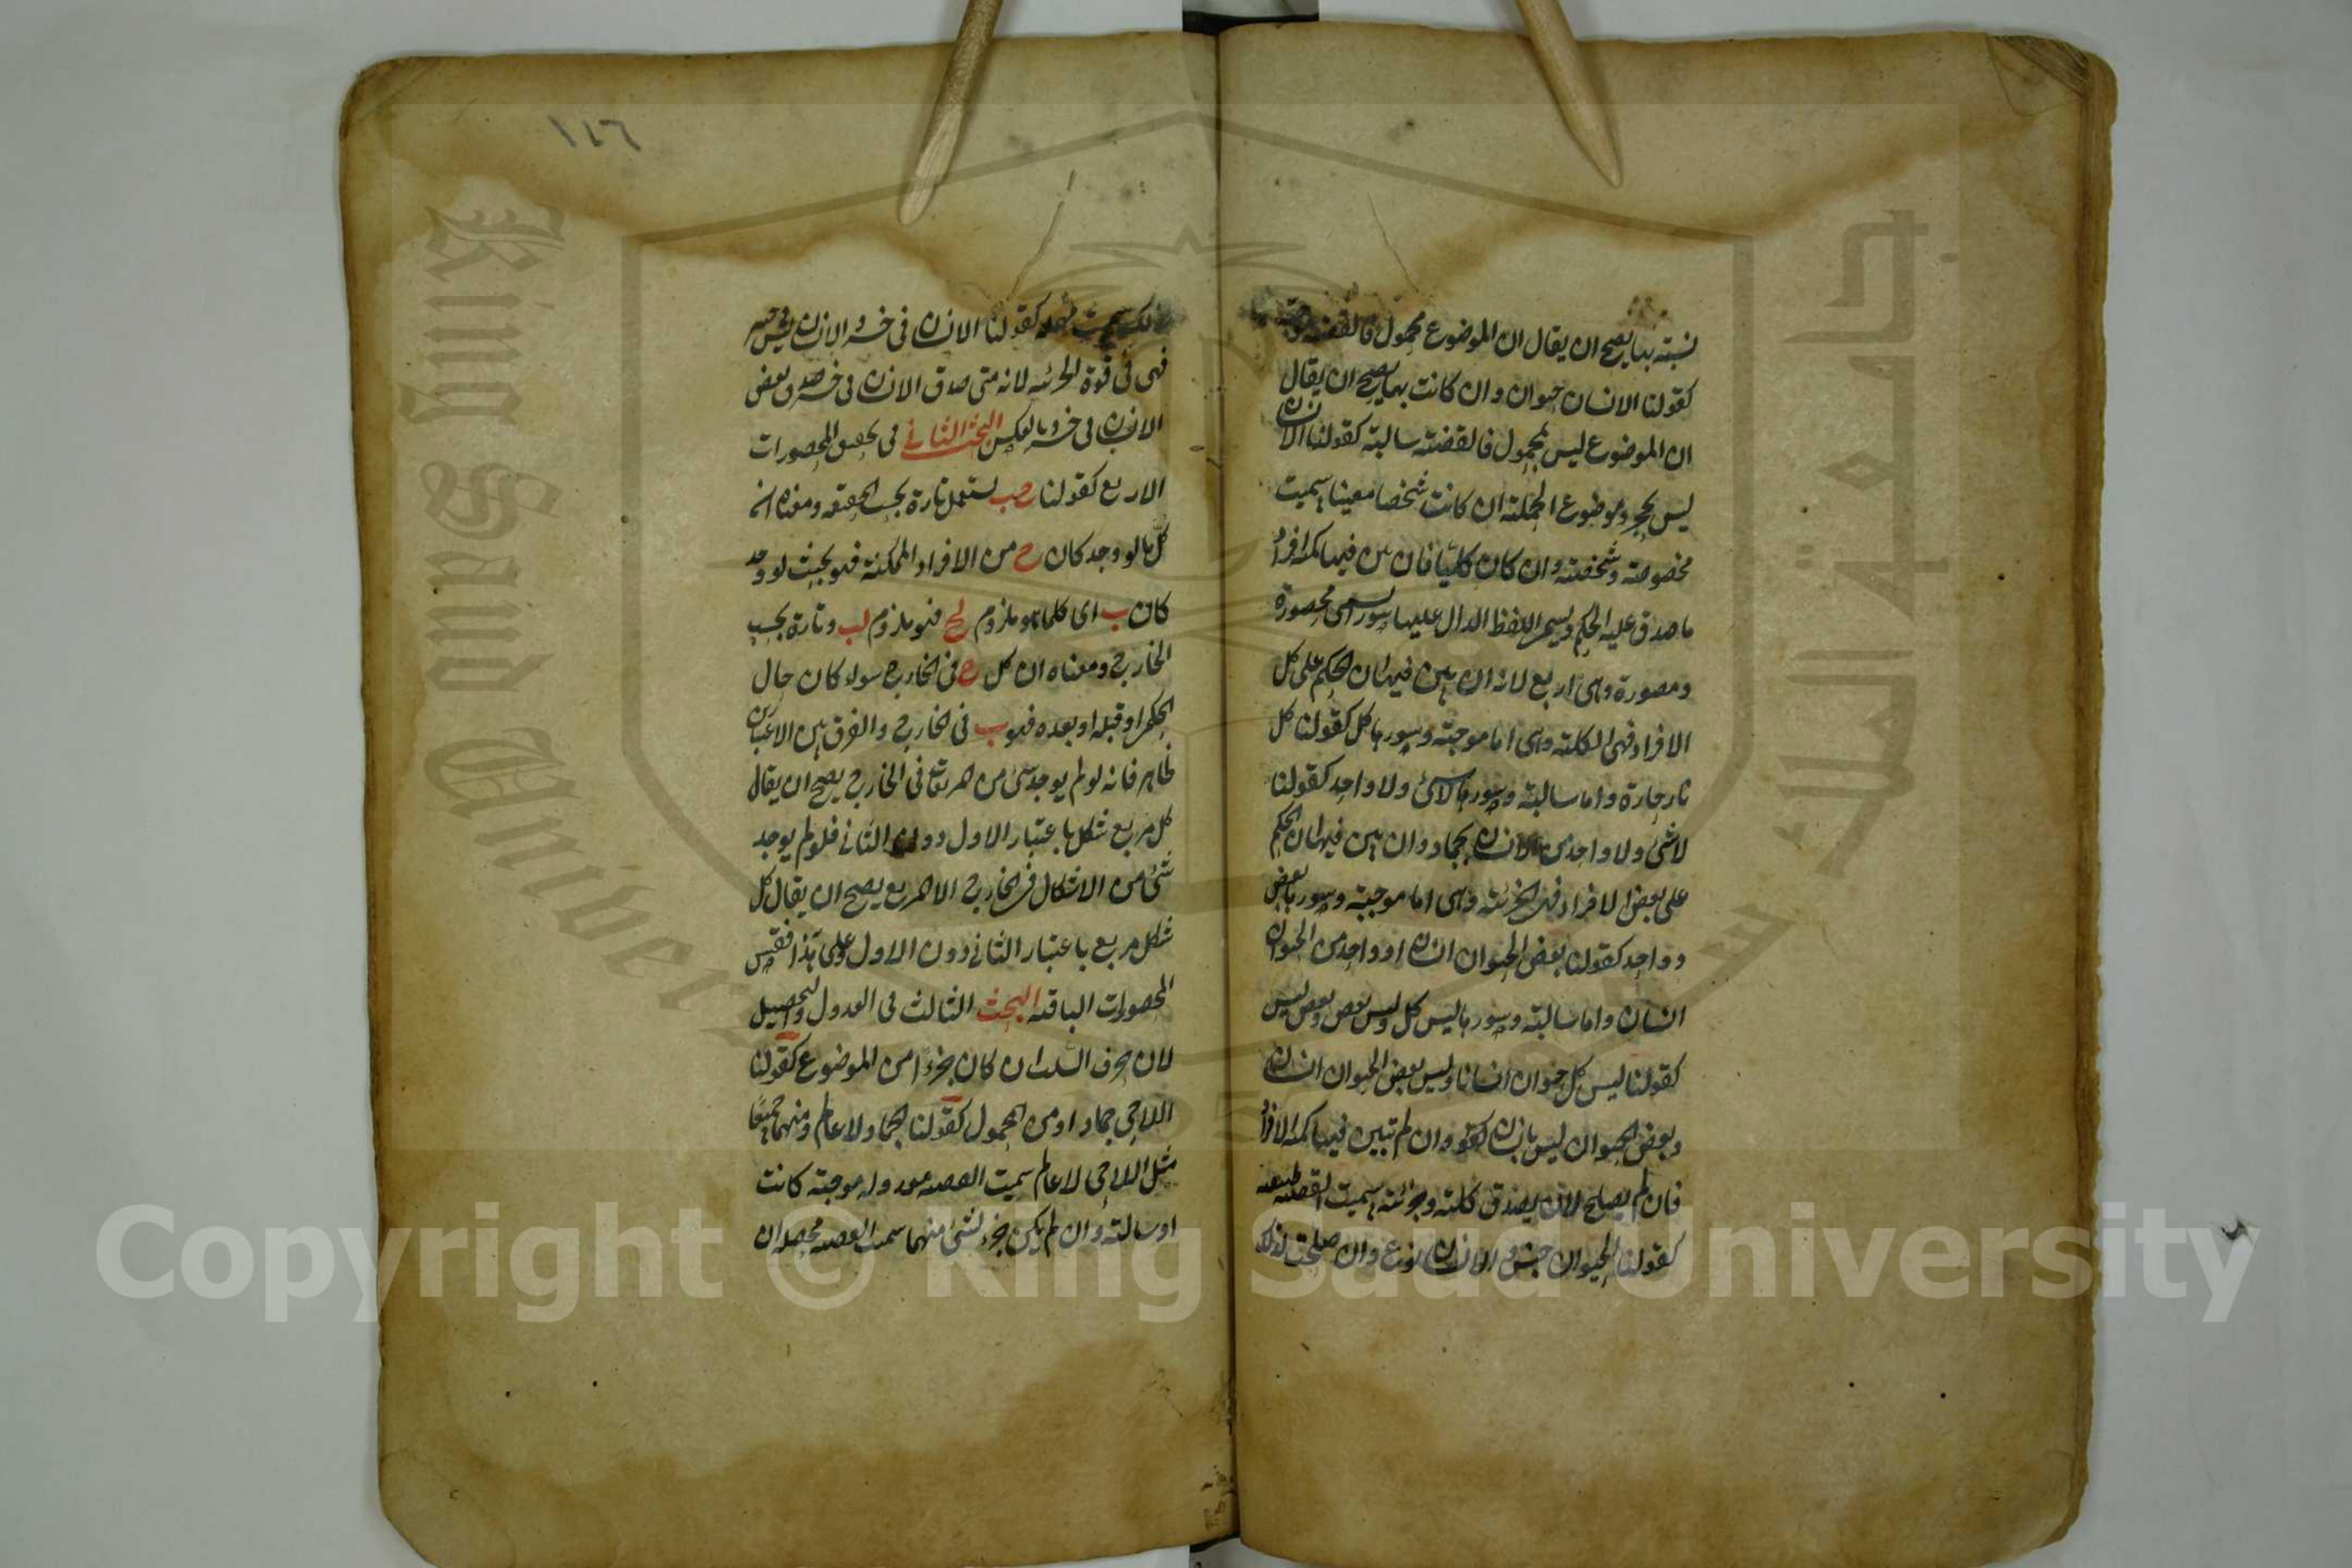 نسبته بها يصح ان يقال ان الموضوع محمول فالقضية موجبة
كقولنا الانسان حيوان وان كانت بها يصح ان يقال
ان الموضوع ليس بمحمول فالقضية سالبة كقولنا الانسان
ليس بحجر وموضوع الحملية ان كانت شخصا معينا سميت
مخصوصة وشخصية وان كان كليا فان بين فيها كمية افراد
ما صدق عليه الحكم ويسمى اللفظ الدال عليها سورا سمى محصورة
ومسورة وهى اربع لانه ان بين فيها ان الحكم على كل
الافراد فهى الكلية وهى اما موجبة وسورها كل كقولنا كل
نار حارة واما سالبة وسورها لا شئ ولا واحد كقولنا
لا شئ ولا واحد من الانسان بجماد وان بين فيها ان الحكم
على بعض الافراد فهى الجزئية وهى اما موجبة وسورها بعض
وواحد كقولنا بعض الحيوان انسان او واحد من الحيوان
انسان واما سالبة وسورها ليس كل وليس بعض وبعض ليس
كقولنا ليس كل حيوان انسانا وليس بعض الحيوان انسان
وبعض الحيوان ليس بانسان وان لم تبين فيها كمية الافراد
فان لم يصلح لان يصدق كلية وجزئية سميت القضية طبيعية
كقولنا الحيوان جنس والانسان نوع وان صلحت لذلك
١٤٦
سميت مهملة كقولنا الانسان فى خسر والانسان ليس فى خسر
فهى فى قوة الجزئية لانه متى صدق الانسان فى خسر صدق بعض
الانسان فى خسر وبالعكس البحث الثانى فى تحقيق المحصورات
الاربع كقولنا ج ب يستعمل تارة بحسب الحقيقة ومعناه ان
كل ما لو وجد كان ج من الافراد الممكنة فهو بحيث لو وجد
كان ب اى كلما هو ملزوم لج فهو ملزوم لب وتارة بحسب
الخارج ومعناه ان كل ج فى الخارج سواء كان حال
الحكم او قبله او بعده فهو ب فى الخارج والفرق بين الاعتبارين
ظاهر فانه لو لم يوجد شئ من المربعات فى الخارج يصح ان يقال
كل مربع شكل باعتبار الاول دون الثانى فلو لم يوجد
شئ من الاشكال فى الخارج الا المربع يصح ان يقال كل
شكل مربع باعتبار الثانى دون الاول وعلى هذا فقس
المحصورات الباقية البحث الثالث فى العدول والتحصيل
لان حرف السلب ان كان جزءا من الموضوع كقولنا
اللاحى جماد او من المحمول كقولنا الجماد لا عالم ومنهما جميعا
مثل اللاحى لا عالم سميت القضية معدولة موجبة كانت
او سالبة وان لم يكن جزء لشئ منهما سميت القضية محصلة ان
King Saud University
Copyright © King Saud University